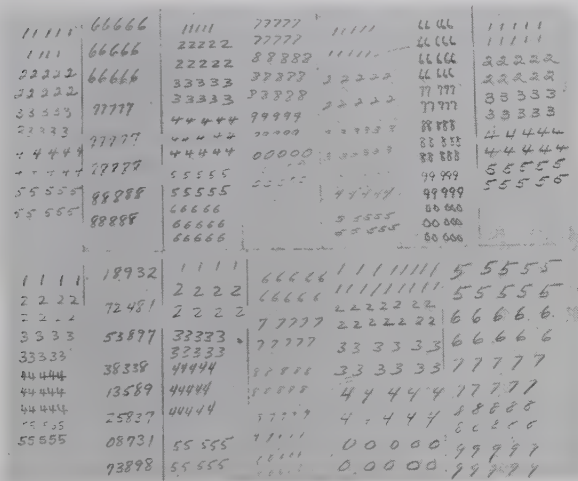 11111
1111
22222
22222
33333
33333
44444
55 555
55 555
66666
66666
66666
77777
77777
77777
88888
88888
11111
22222
22222
33333
33333
44444
44444
44444
55555
55555
66666
66666
66666
77777
77777
88888
88888
88888
99999
00000
11111
11111
22222
22222
33333
33333
44444
55555
55555
66 666
66 666
66 666
66 666
77 777
77 777
88 888
88 888
88 888
99 999
99 999
00 000
00 000
00 000
11111
11111
22222
22222
33333
33333
44444
44444
55555
55555
1 1 1 1
2 2 2 2
2 2 2 2
3 3 3 3
33333
44444
44444
44444
55555
55555
18932
72481
53897
38338
13589
25837
08731
73898
1 1 1 1
2 2 2 2
2 2 2 2
33333
33333
44444
44444
44444
55 555
55 555
66666
66666
77777
77777
88888
88888
11111
11111
1 1 1 11111
1 1 1 11111
22222 22
22222 22
33 3 3 33
33 3 3 33
44 4 4 4
0 0 0 0 0
0 0 0 0 0
5 5 5 5 5
5 5 5 5 5
6 6 6 6 6
6 6 6 6 6
7 7 7 7 7
7 7 7 7 7
8 8 8 8 8
9 9 9 9 9
9 9 9 9 9